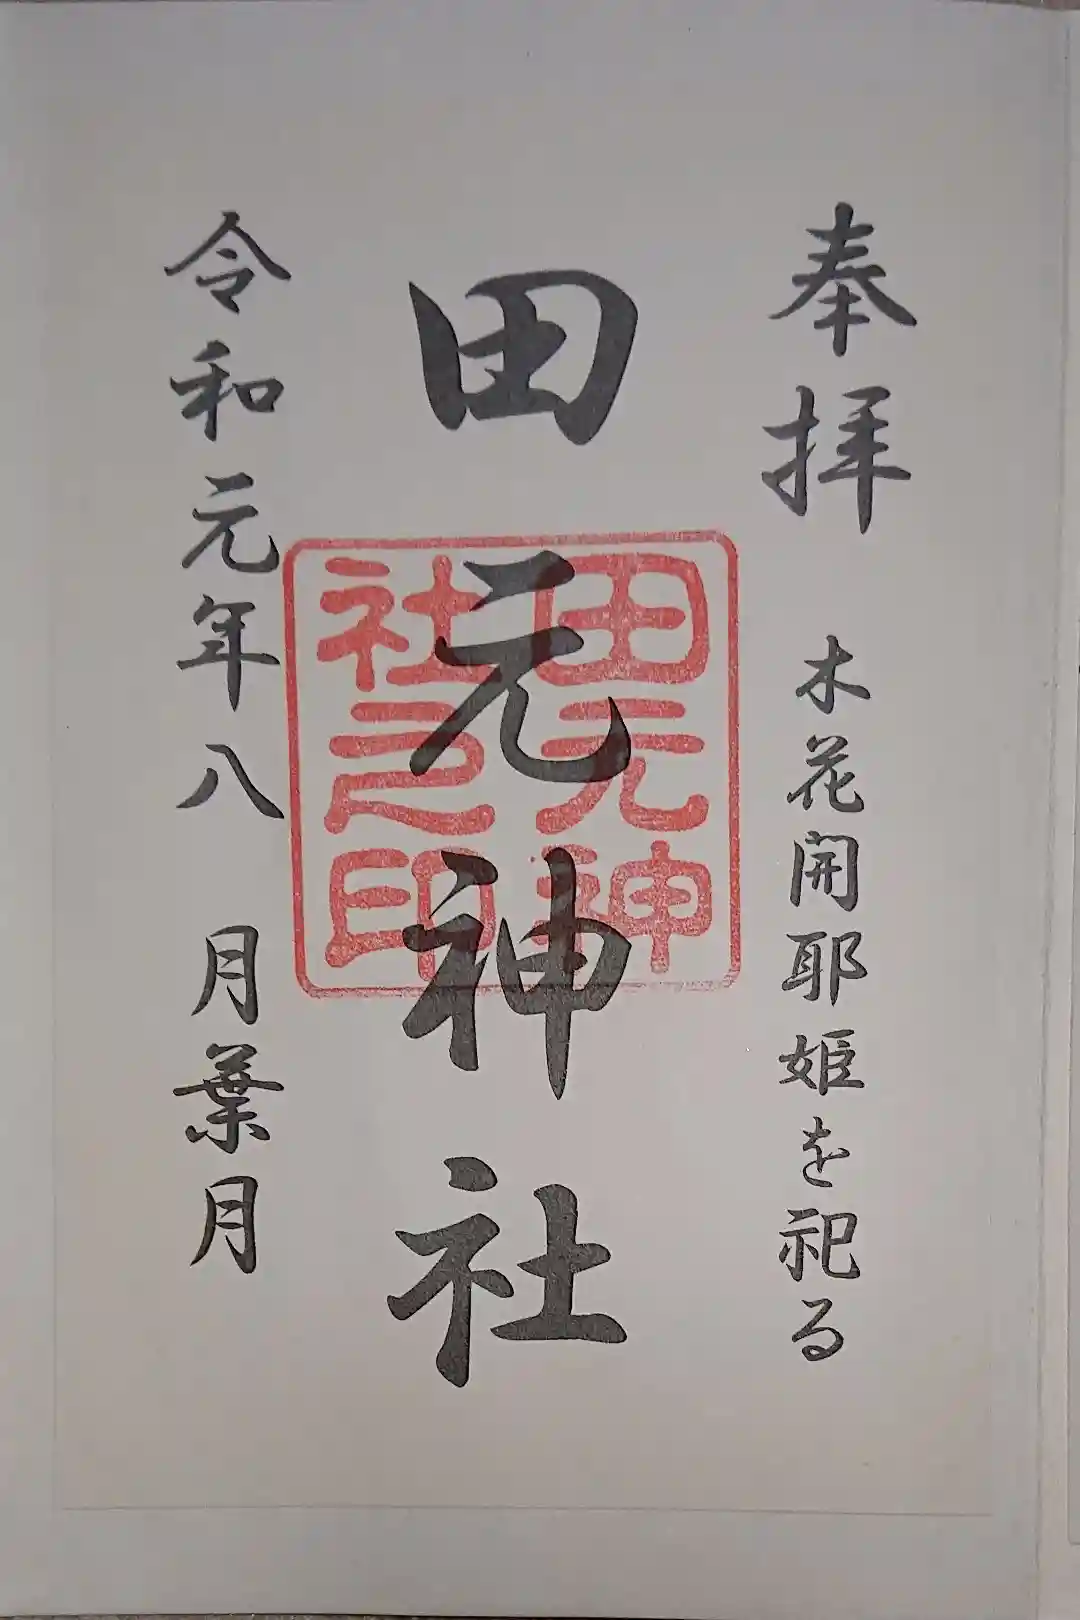 奉拝 木花開耶姫を祀る
田元神社
田元神
社之印
令和元年八 月葉月